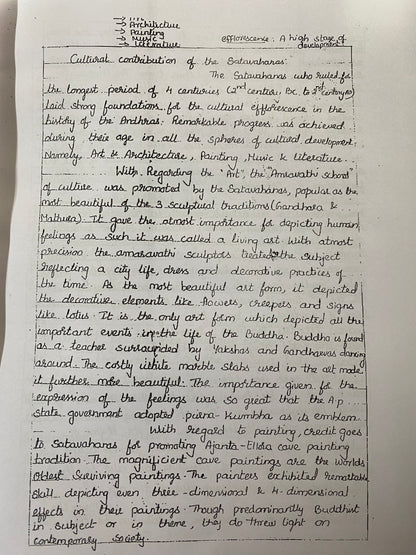 → Architecture
→ Painting
→ Music
→ Literature
efflorescence: A high stage of
development
Cultural contribution of the Satavahanas:
The Satavahanas who ruled for
the longest period of 4 centuries (2nd century Bc to 2nd century AD)
laid strong foundations for the cultural efflorescence in the
history of the Andhras. Remarkable progress was achieved
during their age in all the spheres of cultural development,
Namely, Art & Architecture, Painting, Music & Literature.
With Regarding the "Art", the "Amravathi school"
of culture was promoted by the Satavahanas, popular as the
most beautiful of the 3 sculptural traditions (Gandhara &
Mathura). It gave the atmost importance for depicting human
feelings as such it was called a living art. With atmost
precision the amaravathi sculptors treated the subject
reflecting a city life, dress and decorative practices of
the time. As the most beautiful art form, it depicted
the decorative elements like flowers, creepers and signs
like lotus. It is the only art form which depicted all the
important events in the life of the Buddha. Buddha is found
as a teacher surrounded by Yakshas and Gandharvas dancing
around. The costly white marble slabs used in the art made
it further more beautiful. The importance given for the
expression of the feelings was so great that the A.p
state government adopted purna-Kumbha as its emblem
With regard to painting, credit goes
to Satavahanas for promoting Ajanta-Ellora cave painting
tradition. The magnificient cave paintings are the worlds
oldest Surviving paintings. The painters exhibited remarkable
skill depicting even three-dimensional & 4-dimensional
effects in their paintings. Though predominantly Buddhist
in subject or in theme, they do threw light on
contemporary Society.